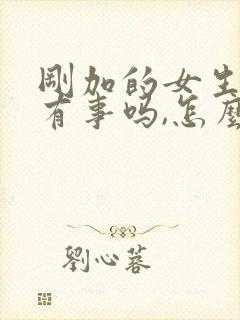 剛加的女生
有事吗,怎麼
劉心蓉